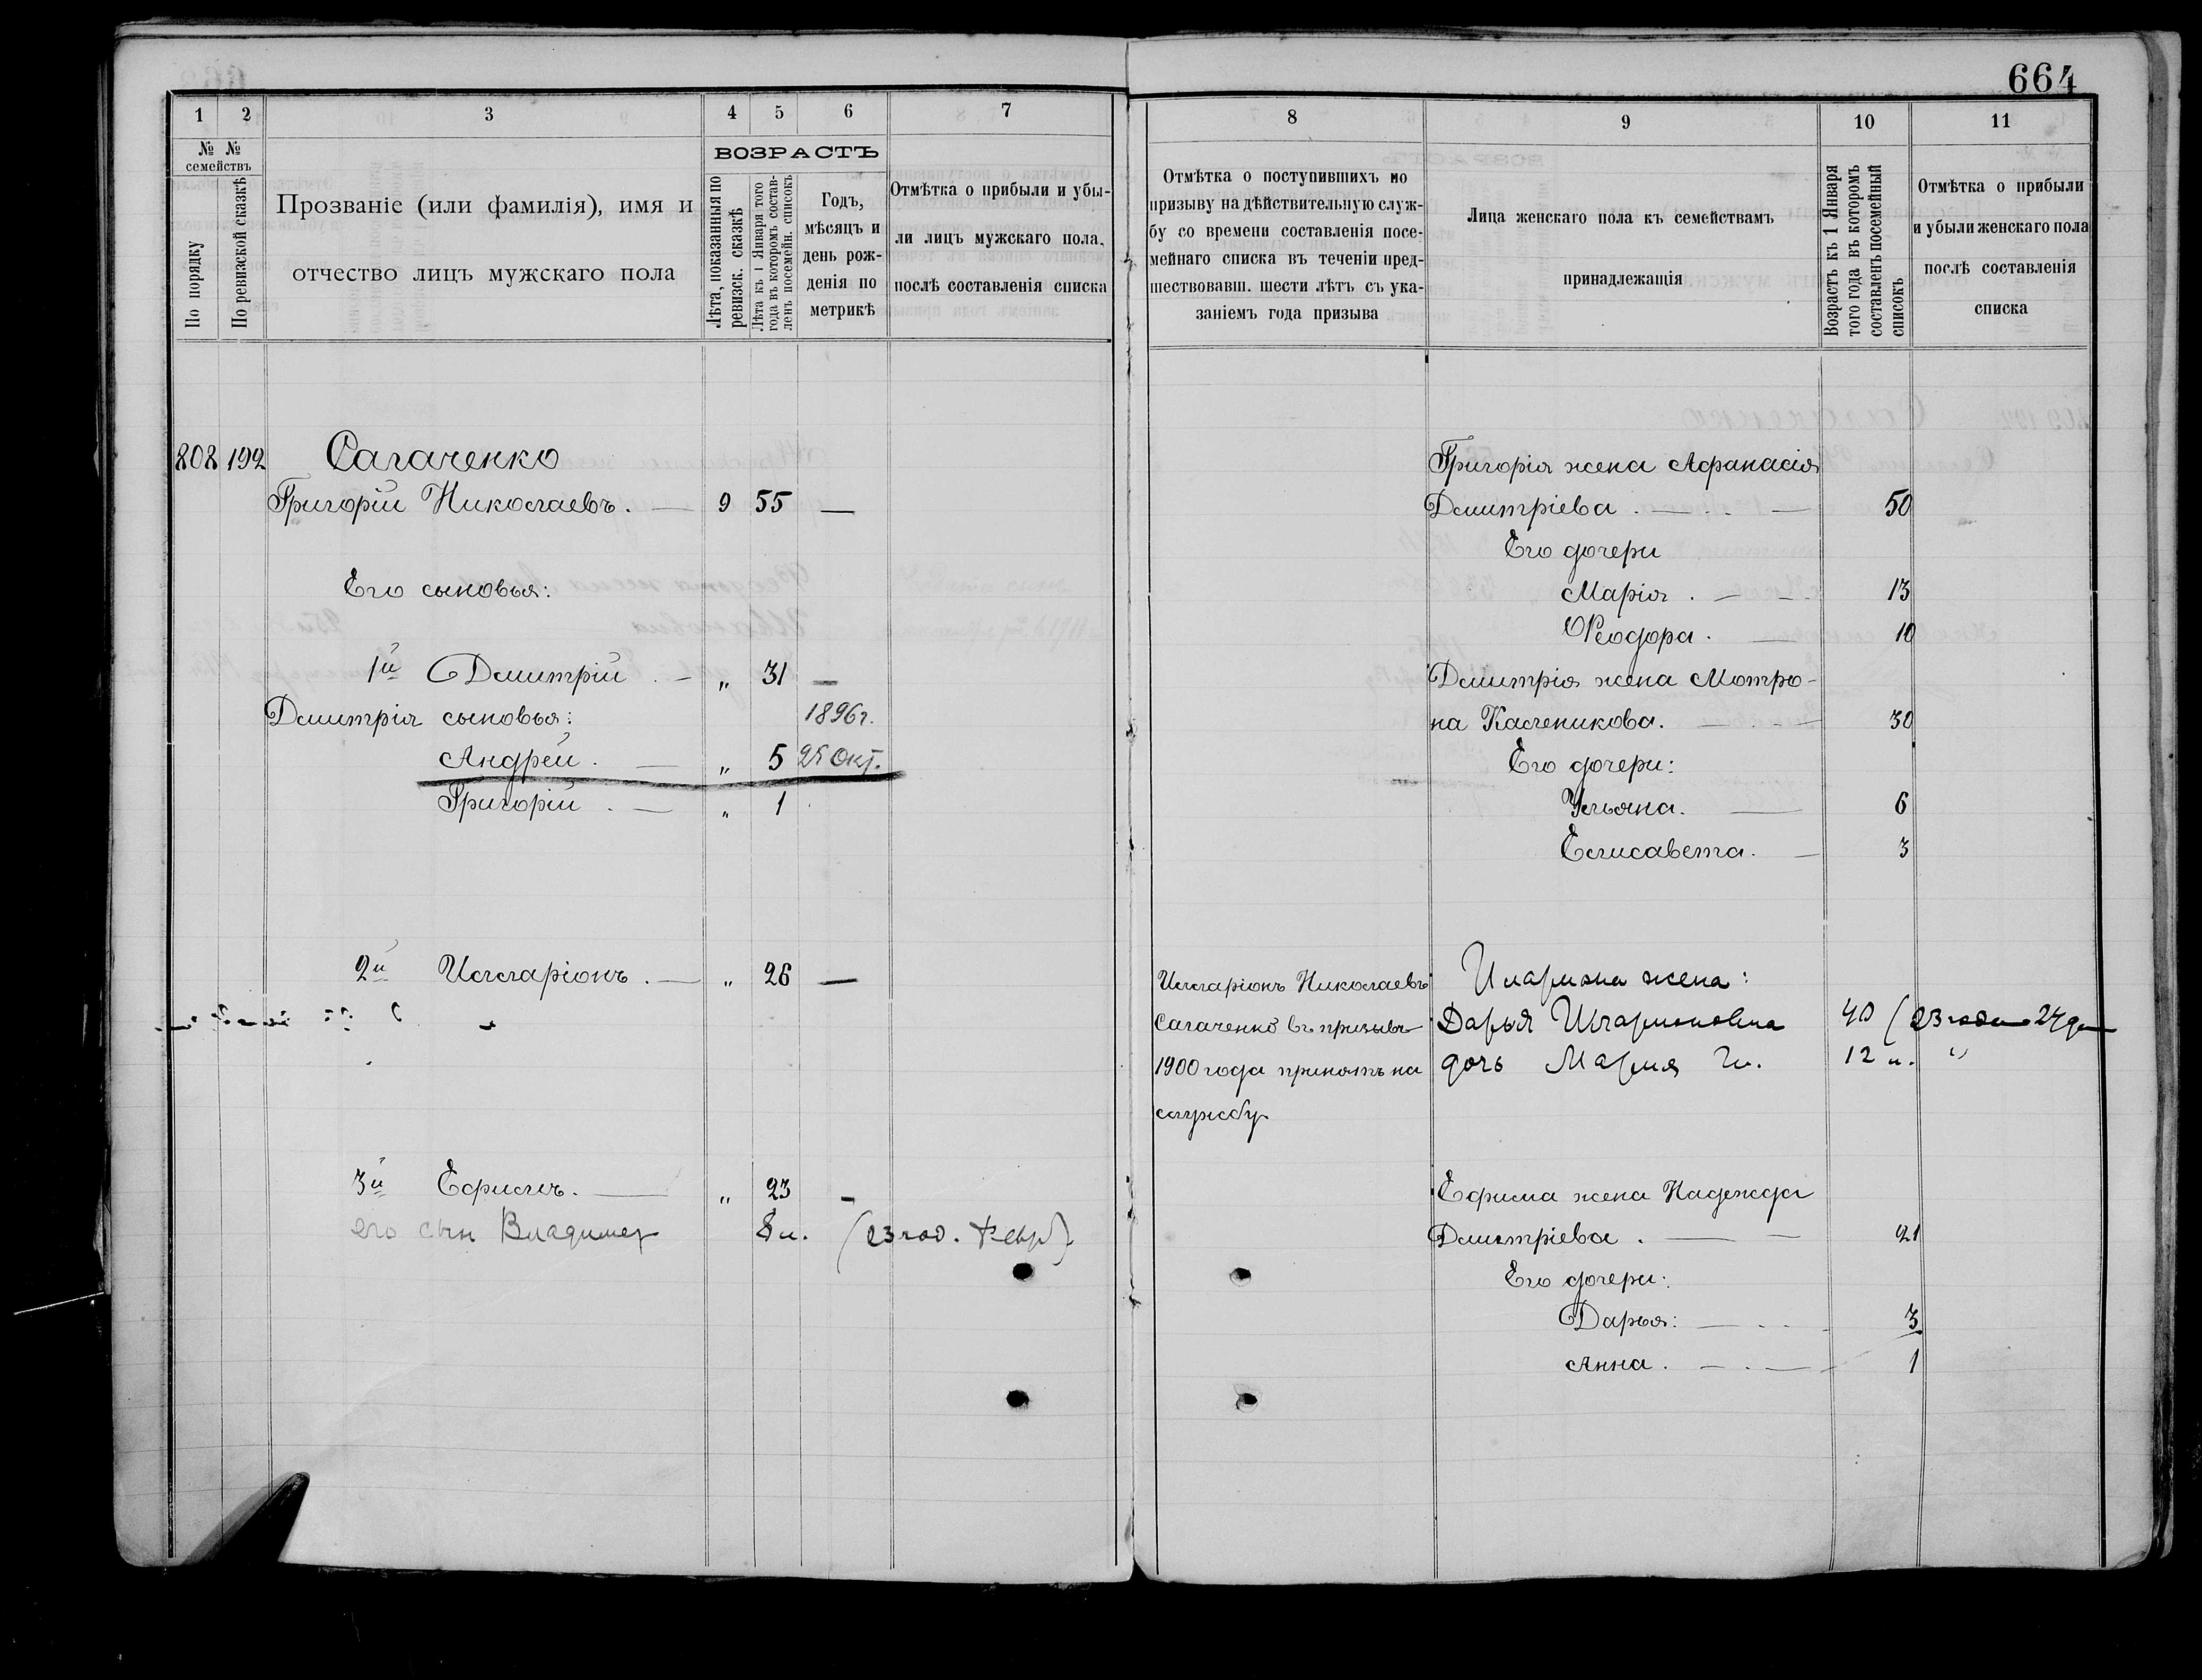 664
1
2
3
4
5
6
7
№ №
семействъ
По порядку
По ревизской сказкѣ
Прозваніе (или фамилія), имя и
отчество лицъ мужскаго пола
ВОЗРАСТЪ
Лѣта, показанныя по
ревизск. сказкѣ
Лѣта къ 1 Января того
года въ которомъ состав-
ленъ посемейн. списокъ
Годъ,
мѣсяцъ и
день рож-
денія по
метрикѣ
Отмѣтка о прибыли и убы-
ли лицъ мужскаго пола,
послѣ составленія списка
808 192 Сагаченко
Григорій Николаевъ. — 9 55 —
Его сыновья:
1й Дмитрій . — „ 31 —
Дмитрія сыновья: 1896г.
Андрей. — „ 5 25 Окт.
Григорій . — „ 1
2й Илларіонъ . — „ 26 —
3й Ефимъ. — „ 23 -
его сын Владимер 8 м. (23 год. Февр)
8
9
10
11
Отмѣтка о поступившихъ по
призыву на дѣйствительную служ-
бу со времени составленія посе-
мейнаго списка въ теченіи пред-
шествовавш. шести лѣтъ съ ука-
заніемъ года призыва
Лица женскаго пола къ семействамъ
принадлежащія
Возрастъ къ 1 Января
того года въ которомъ
составленъ посемейный
списокъ
Отмѣтка о прибыли
и убыли женскаго пола
послѣ составленія
списка
Григорія жена Афанасія
Дмитріева . — . — 50
Его дочери
Марія . — - 13
Ѳеодора. — 10
Дмитрія жена Мотро-
на Калѣникова. — . — 30
Его дочери:
Ульяна. — 6
Елисавета. — 3
Илларіонъ Николаевъ
Сагаченко въ призывѣ
1900 года принятъ на
службу
Илариона жена:
Дарья Илларионовна 40 (23 года 24 д
дочь Мария Ил. 12 м. "
Ефима жена Надежда
Дмитріева . — — 21
Его дочери:
Дарья: — . . . 3
Анна . — . — 1